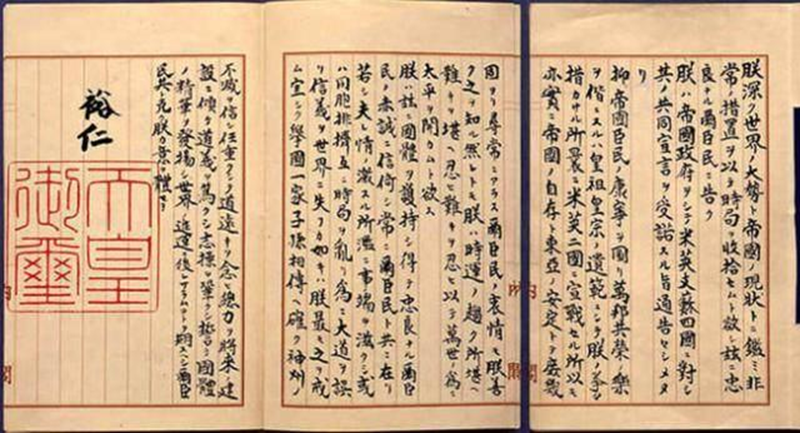 朕深ク世界ノ大勢ト帝國ノ現狀トニ鑑ミ非
常ノ措置ヲ以テ時局ヲ收拾セムト欲シ茲ニ忠
良ナル爾臣民ニ告ク
朕ハ帝國政府ヲシテ米英支蘇四國ニ對シ
其ノ共同宣言ヲ受諾スル旨通告セシメタ
リ
抑帝國臣民ノ康寧ヲ圖リ萬邦共榮ノ樂
ヲ偕ニスルハ皇祖皇宗ノ遺範ニシテ朕ノ拳々
措カサル所曩ニ米英二國ニ宣戰セル所以モ
亦實ニ帝國ノ自存ト東亞ノ安定トヲ庶幾
内閣
固ヨリ尋常ニアラス爾臣民ノ衷情モ朕善
ク之ヲ知ル然レトモ朕ハ時運ノ趨ク所堪ヘ
難キヲ堪ヘ忍ヒ難キヲ忍ヒ以テ萬世ノ爲ニ
太平ヲ開カムト欲ス
朕ハ茲ニ國體ヲ護持シ得テ忠良ナル爾臣
民ノ赤誠ニ信倚シ常ニ爾臣民ト共ニ在リ
若シ夫レ情ノ激スル所濫ニ事端ヲ滋クシ或
ハ同胞排擠互ニ時局ヲ亂リ爲ニ大道ヲ誤
リ信義ヲ世界ニ失フカ如キハ朕最モ之ヲ戒
ム宜シク擧國一家子孫相傳ヘ確ク神州ノ
不滅ヲ信シ任重クシテ道遠キヲ念ヒ總力ヲ將來ノ建
設ニ傾ケ道義ヲ篤クシ志操ヲ鞏クシ誓テ國體
ノ精華ヲ發揚シ世界ノ進運ニ後レサラムコトヲ期スヘシ爾臣
民其レ克ク朕カ意ヲ體セヨ
裕仁
天皇
御璽
内閣